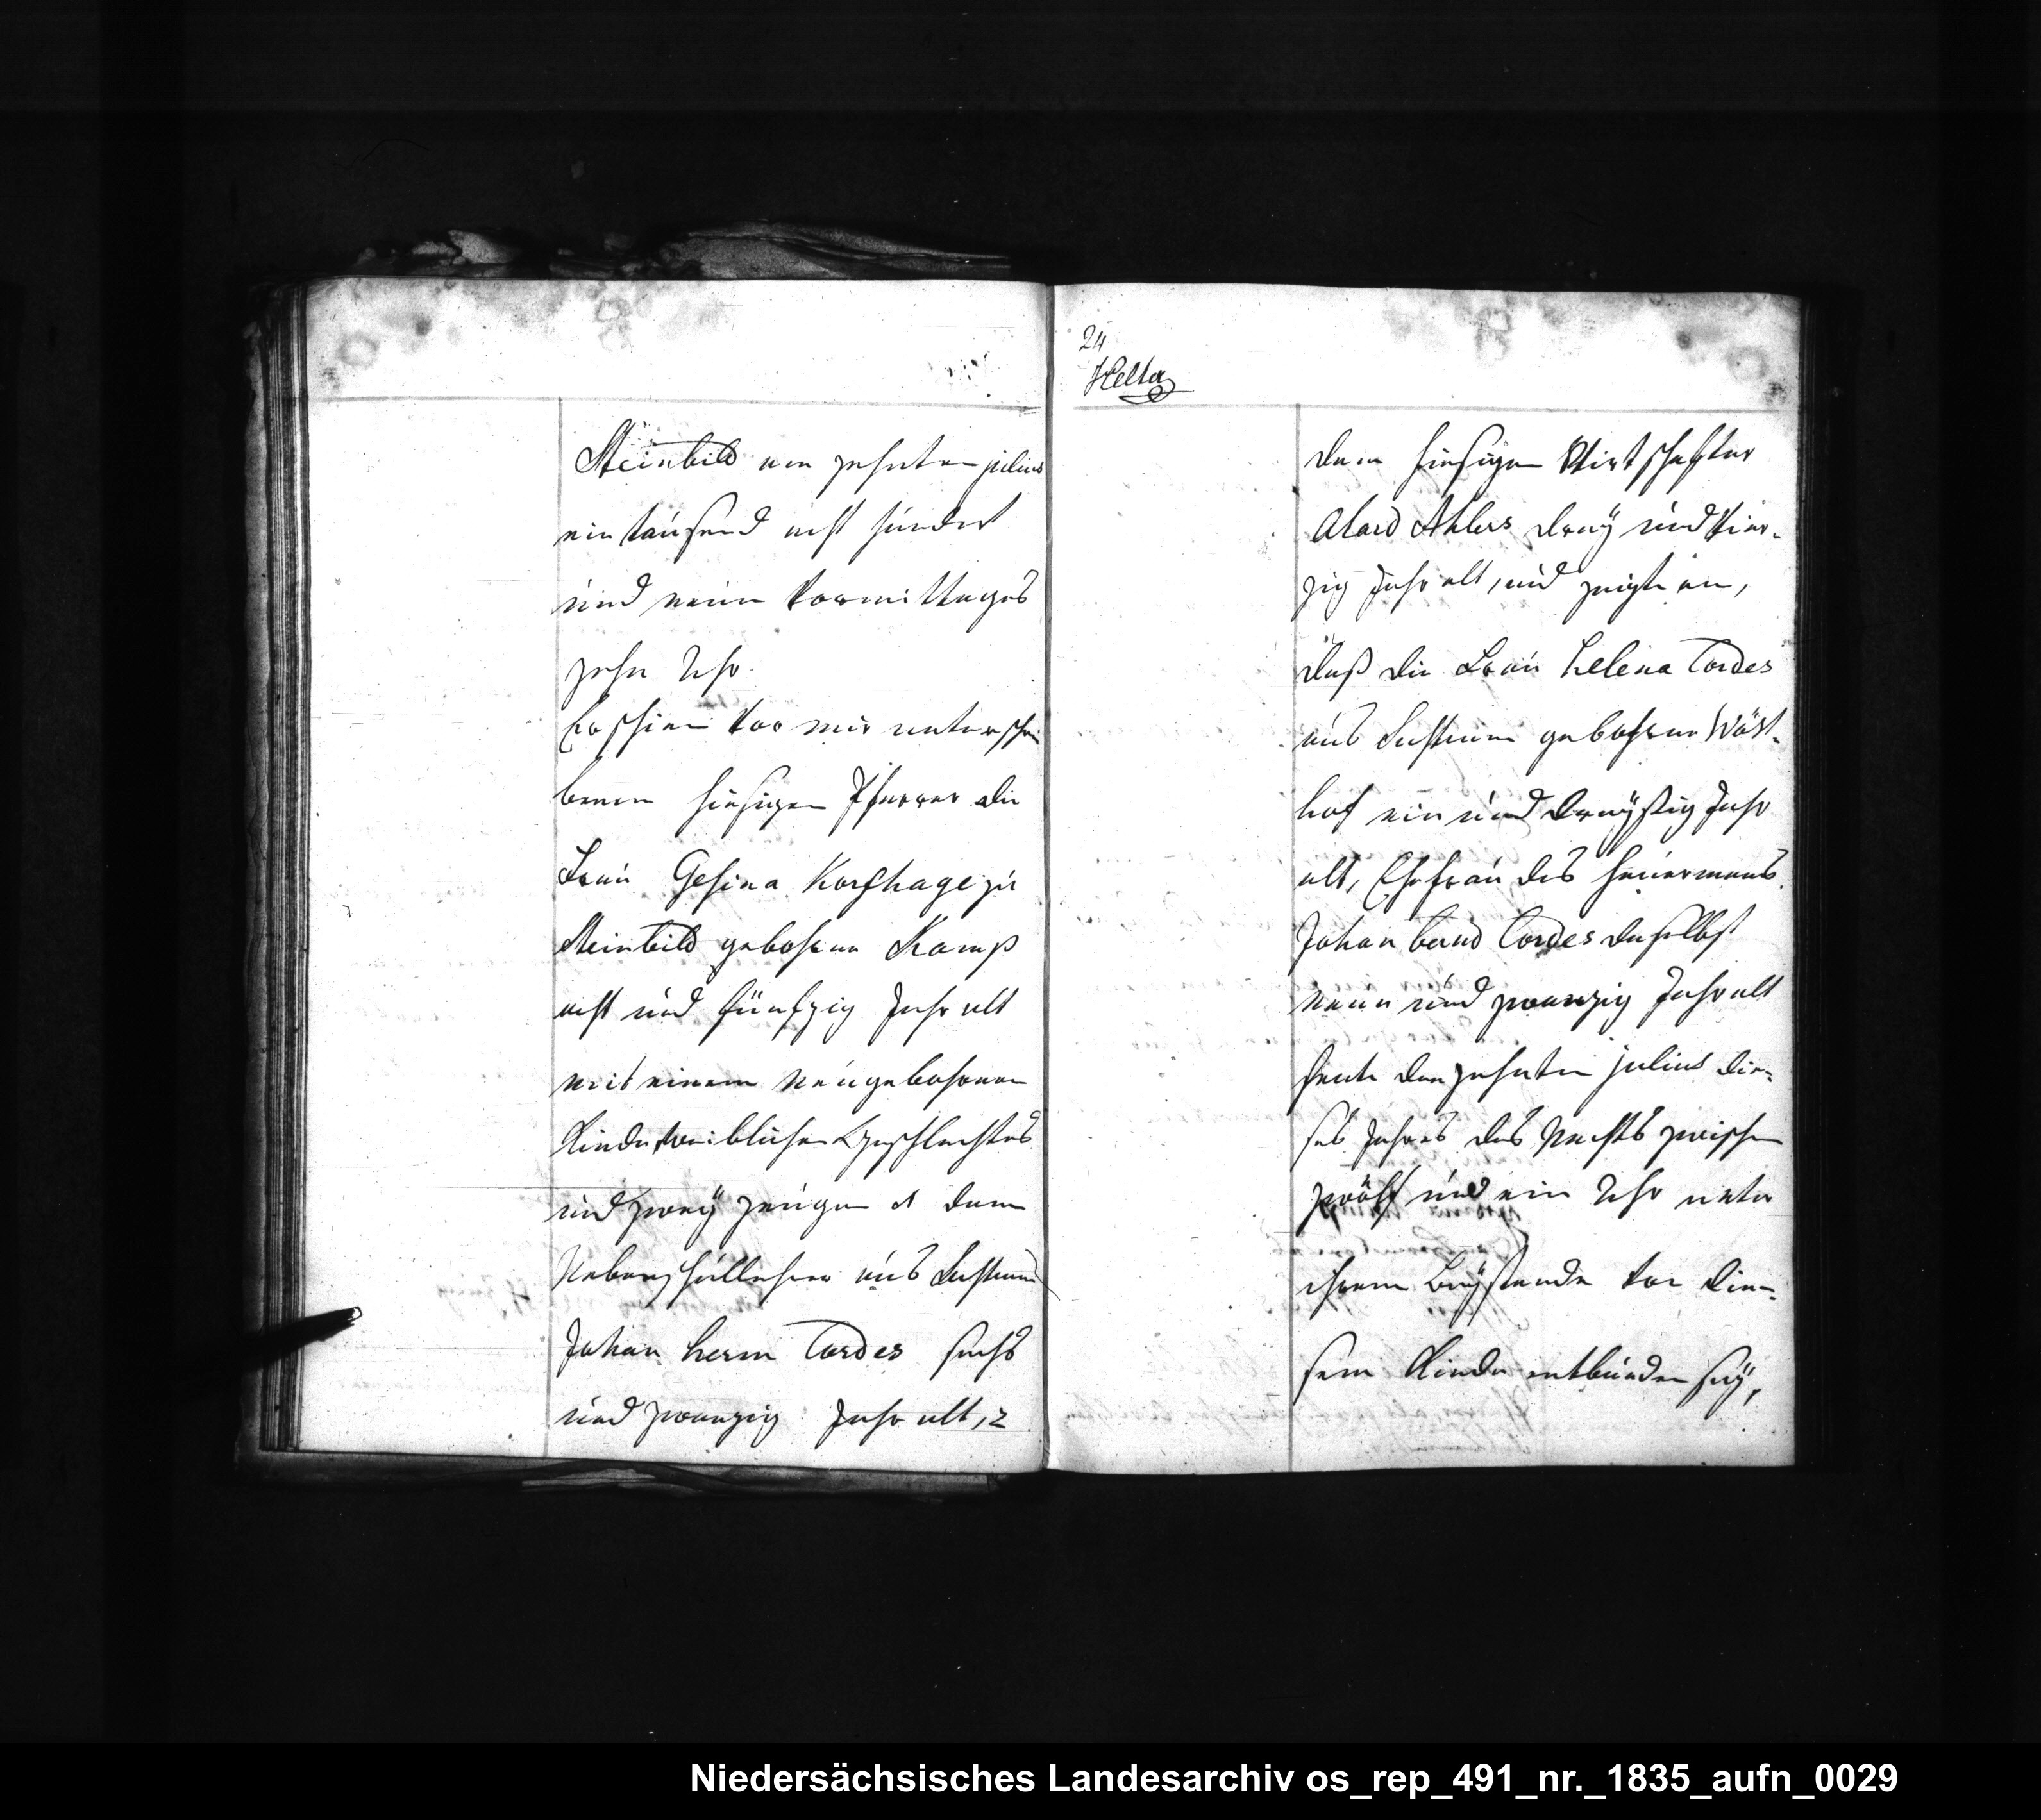 Steinbild am zehnten julius
ein tausend acht hundert
und neun Vormittages
zehn Uhr.
Erschien vor mir unterschrie
benen hiesigen Pfarrer die
Frau Gesina Korfhage zu
Steinbild gebohrne Kamp
acht und fünfzig Jahr alt
mit einem neugebohrnen
Kinde weiblichen Geschlechtes
und zwey zeugen 1 dem
Nebenschullehrer aus
Johan herm Cordes sechs
und zwanzig Jahr alt, 2
24
dem hiesigen Wirtschafter
Alard Ahlers drey und vier-
zig Jahr alt, und zeigte an,
daß die Frau helena Cordes
aus gebohrne Wöst-
hof ein und dreyßig Jahr
alt, Ehefrau des heuermans
Johan bernd Cordes daselbst
neun und zwanzig Jahr alt
heute den zehnten julius die-
ses Jahres des Nachts zwischen
zwölf und ein Uhr unter
ihrem Beystande von die-
sem Kinde entbunden sey,
Niedersächsisches Landesarchiv os_rep_491_nr._1835_aufn_0029